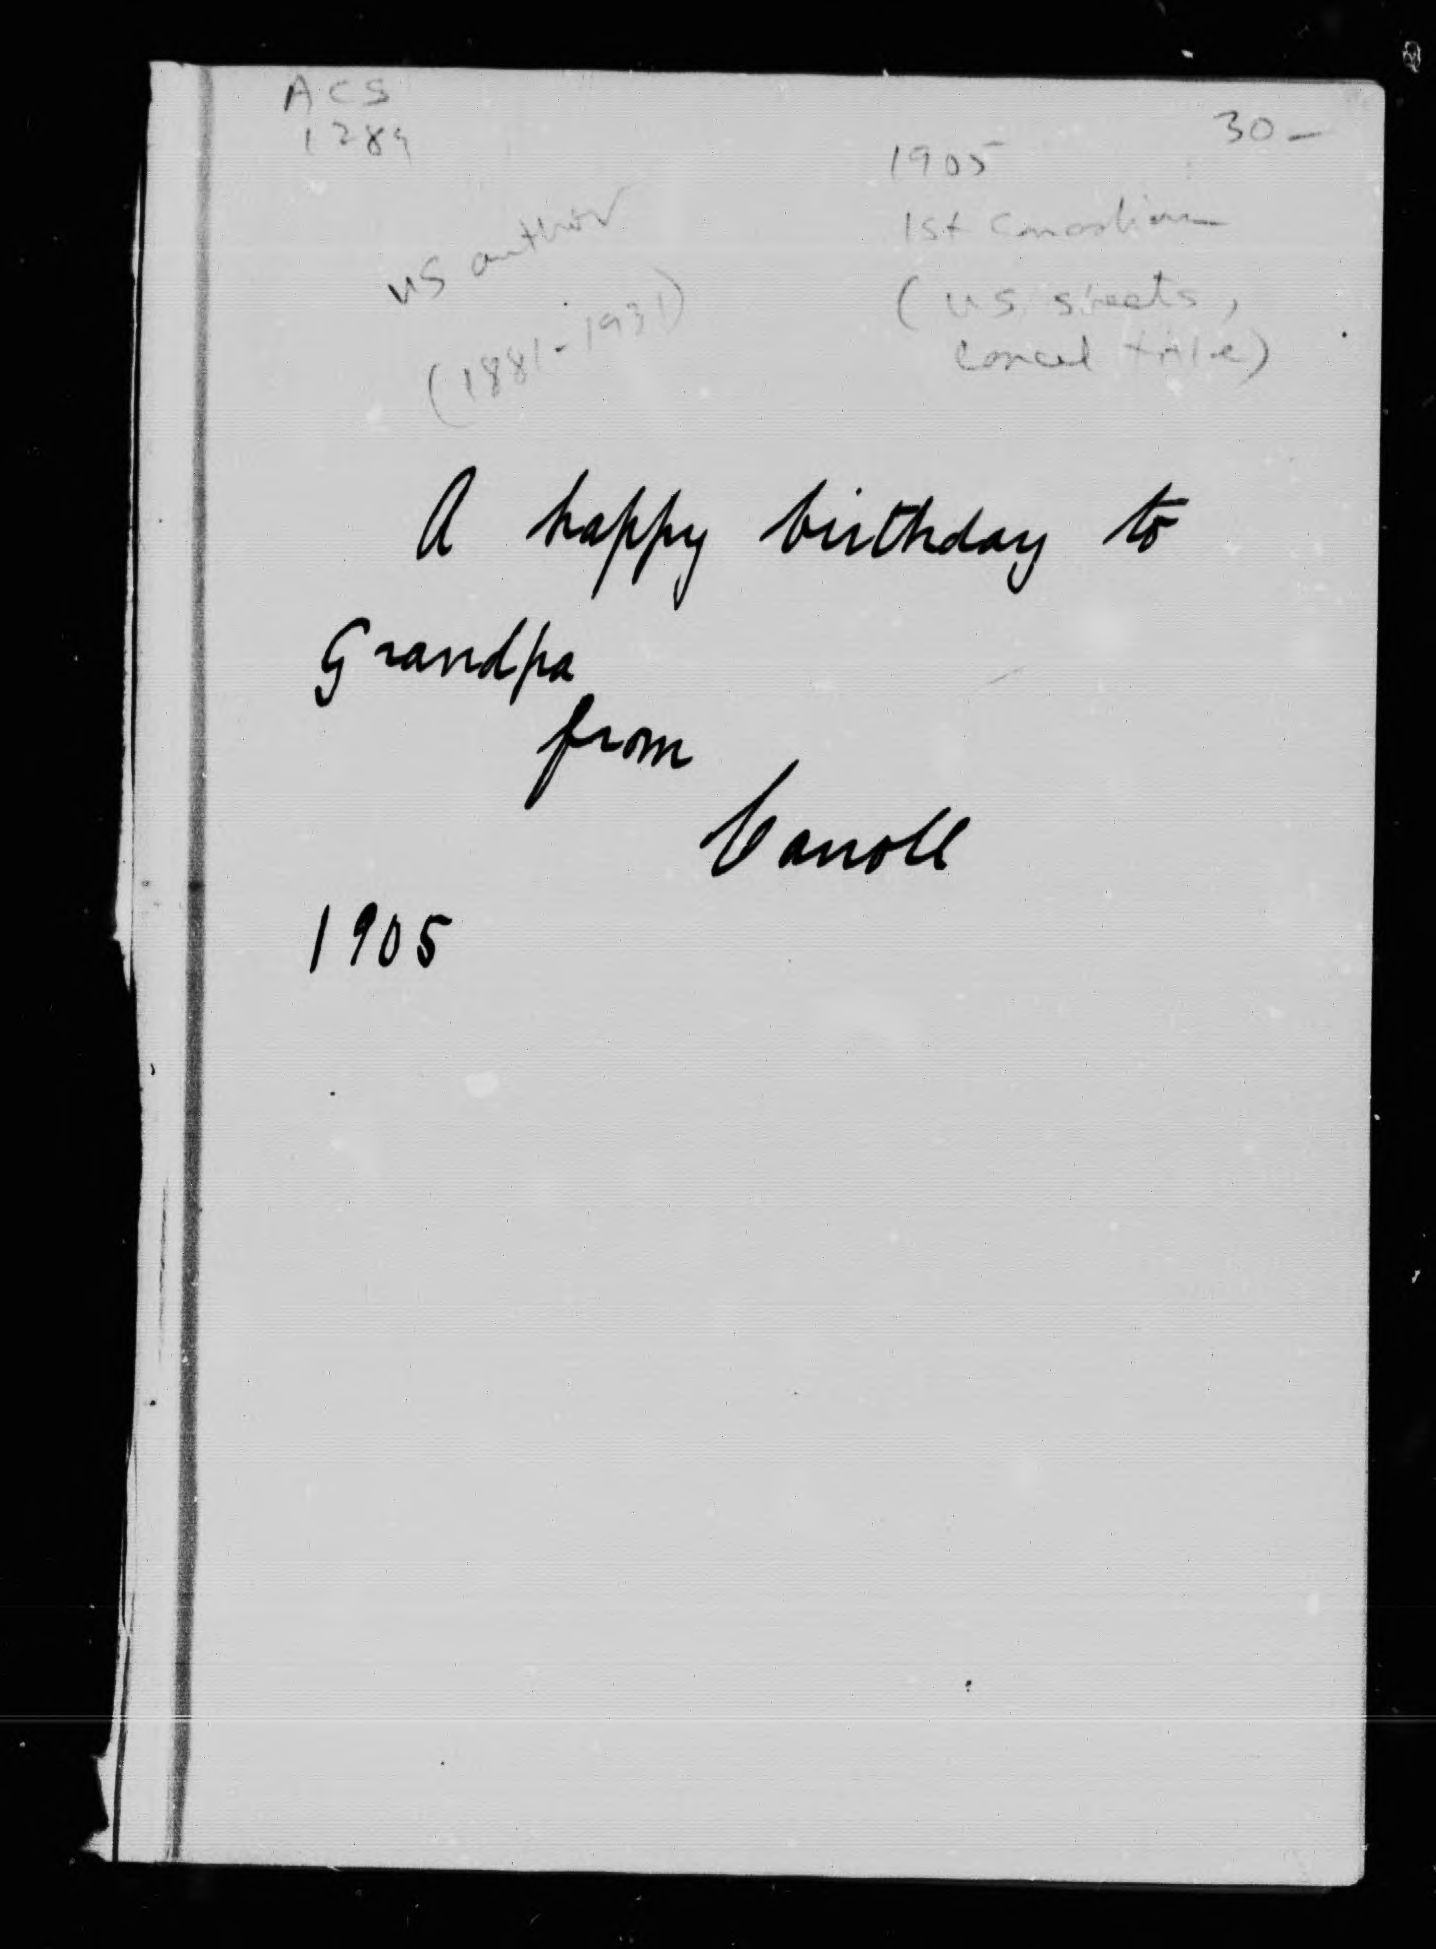 ACS
1289
30-
1905
1st Canadian
(US sheets,
cancel title)
US author
(1881-1931)
A happy birthday to
Grandpa
from
Carroll
1905